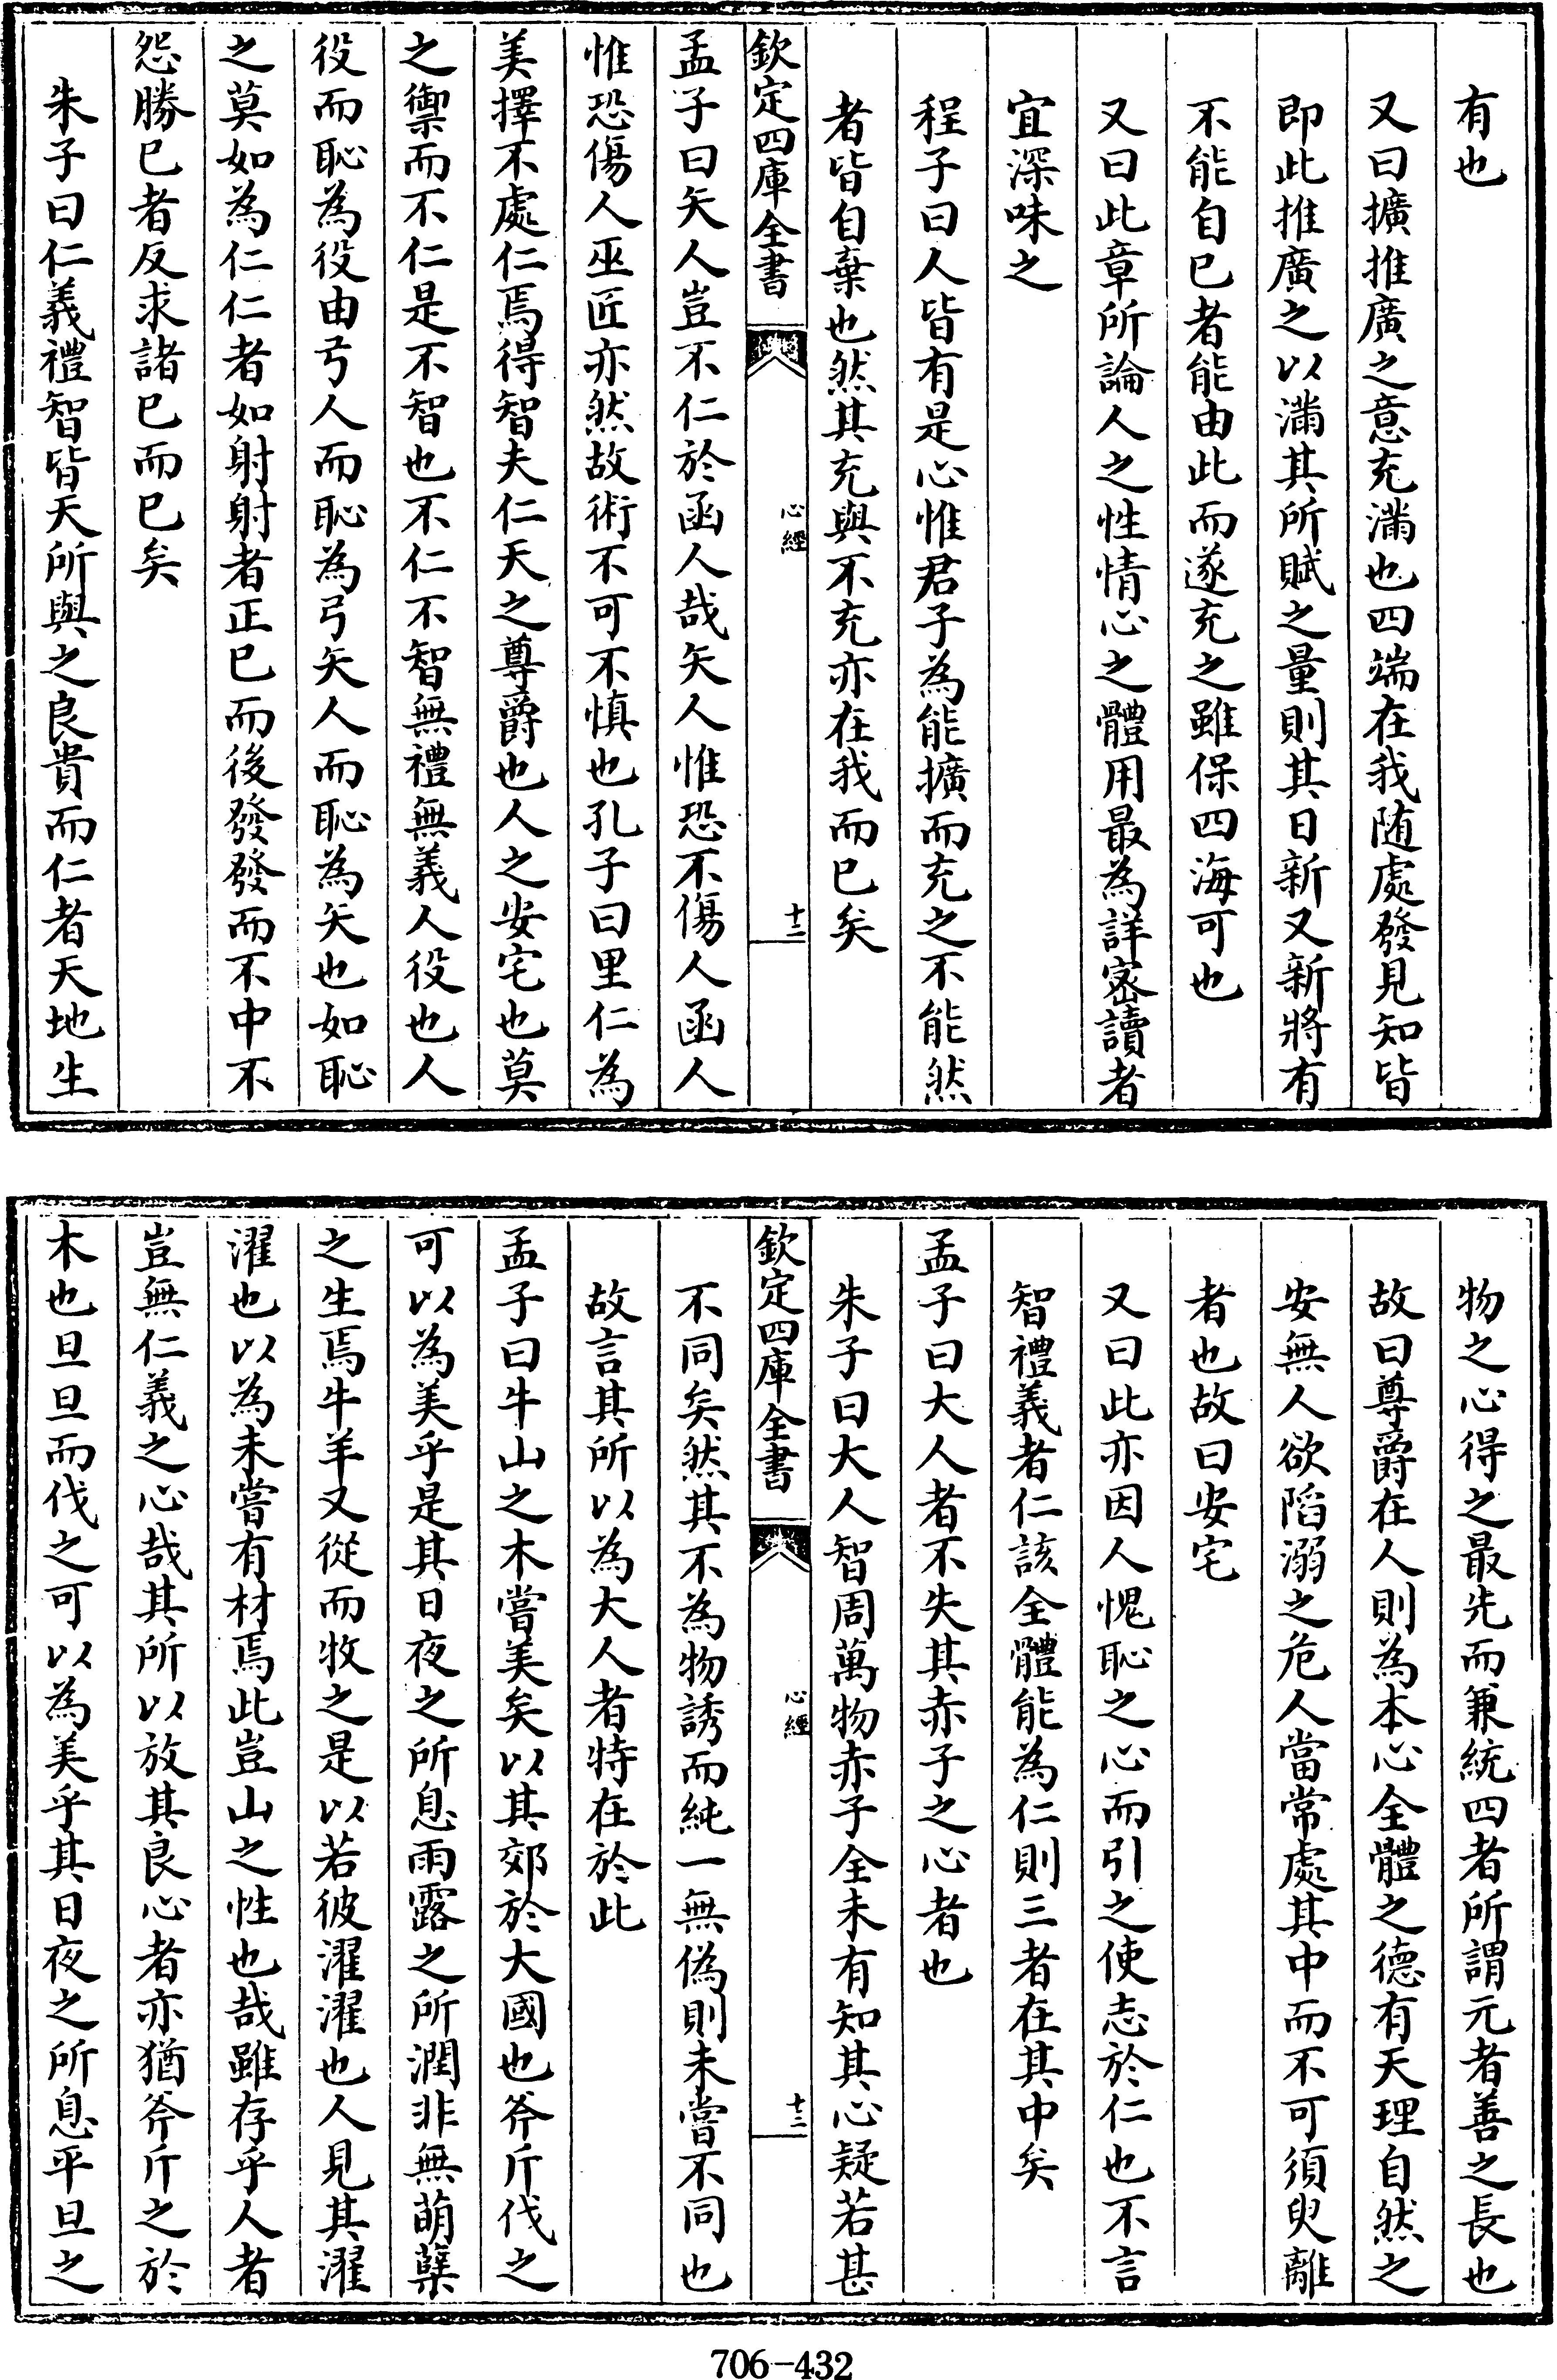 有也
又曰擴推廣之意充滿也四端在我随處發見知皆
即此推廣之以滿其所賦之量則其日新又新將有
不能自已者能由此而遂充之雖保四海可也
又曰此章所論人之性情心之體用最為詳密讀者
宜深味之
程子曰人皆有是心惟君子為能擴而充之不能然
者皆自棄也然其充與不充亦在我而已矣
欽定四庫全書
心經
十二
孟子曰矢人豈不仁於函人哉矢人惟恐不傷人函人
惟恐傷人巫匠亦然故術不可不慎也孔子曰里仁為
美擇不處仁焉得智夫仁天之尊爵也人之安宅也莫
之禦而不仁是不智也不仁不智無禮無義人役也人
役而恥為役由弓人而恥為弓矢人而恥為矢也如恥
之莫如為仁仁者如射射者正已而後發發而不中不
怨勝已者反求諸已而已矣
朱子曰仁義禮智皆天所與之良貴而仁者天地生
物之心得之最先而兼統四者所謂元者善之長也
故曰尊爵在人則為本心全體之德有天理自然之
安無人欲陷溺之危人當常處其中而不可須臾離
者也故曰安宅
又曰此亦因人愧恥之心而引之使志於仁也不言
智禮義者仁該全體能為仁則三者在其中矣
孟子曰大人者不失其赤子之心者也
朱子曰大人智周萬物赤子全未有知其心疑若甚
欽定四庫全書
心經
十二
不同矣然其不為物誘而純一無偽則未嘗不同也
故言其所以為大人者特在於此
孟子曰牛山之木嘗美矣以其郊於大國也斧斤伐之
可以為美乎是其日夜之所息雨露之所潤非無萌蘖
之生焉牛羊又從而牧之是以若彼濯濯也人見其濯
濯也以為未嘗有材焉此豈山之性也哉雖存乎人者
豈無仁義之心哉其所以放其良心者亦猶斧斤之於
木也旦旦而伐之可以為美乎其日夜之所息平旦之
706-432